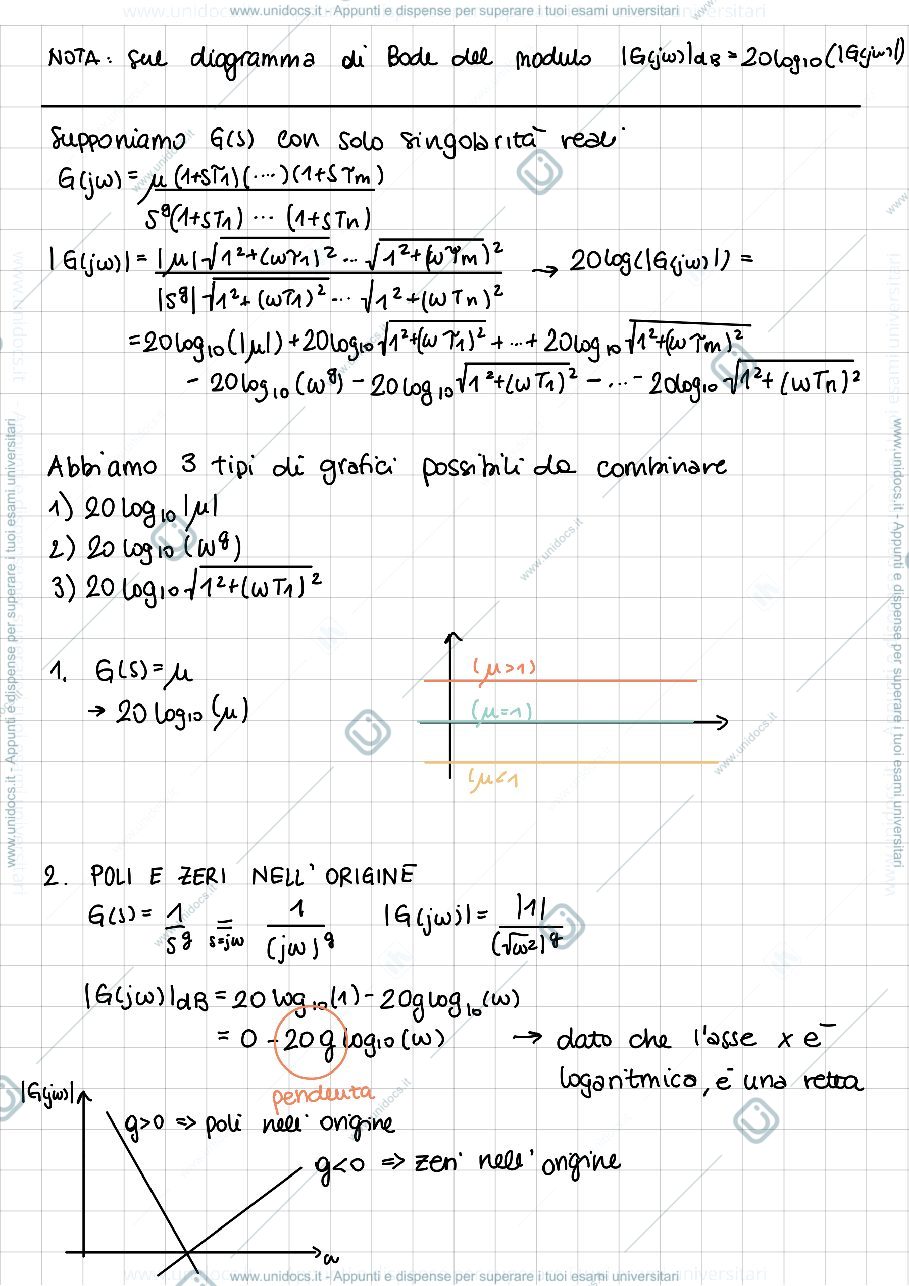 www.unidocs.it - Appunti e dispense per superare i tuoi esami universitari
NOTA: sul diagramma di Bode del modulo |G(jω)|dB = 20log10(|G(jω)|)
Supponiamo G(s) con solo singolarità reali
G(jω) = μ(1+sτ1)(....)(1+sτm)
s^g(1+sT1) ... (1+sTn)
|G(jω)| = |μ|√1²+(ωτ1)² ... √1²+(ωτm)² → 20log(|G(jω)|) =
|s^g| √1²+(ωT1)² ... √1²+(ωTn)²
= 20log10(|μ|) + 20log10√1²+(ωτ1)² + ... + 20log10√1²+(ωτm)²
- 20log10(ω^g) - 20log10√1²+(ωT1)² - ... - 20log10√1²+(ωTn)²
Abbiamo 3 tipi di grafici possibili da combinare
1) 20log10|μ|
2) 20log10(ω^g)
3) 20log10√1²+(ωT1)²
1. G(s) = μ
→ 20log10(μ)
(μ>1)
(μ=1)
(μ<1
2. POLI E ZERI NELL'ORIGINE
G(s) = 1/s^g = s=jω 1/(jω)^g |G(jω)| = |1|/(√ω²)^g
|G(jω)|dB = 20log10(1) - 20glog10(ω)
= 0 - 20g log10(ω) → dato che l'asse x è
logaritmico, è una retta
pendenza
|G(jω)|
g>0 => poli nell'origine
g<0 => zeri nell'origine
ω
www.unidocs.it - Appunti e dispense per superare i tuoi esami universitari